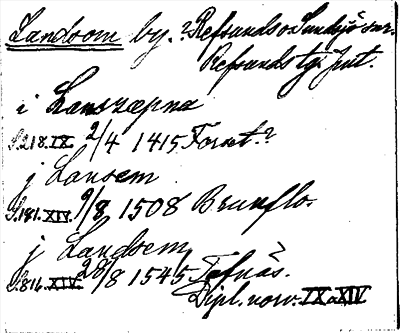 Landsom by. ? Refsunds o. Sundsjö snr.
Refsunds tg. Jmt.
i Lanszæpna
S.218. IX. 2/4 1415 Forset?
j Lansem
S.181. XIV. 9/8 1508 Brunflo.
j Landsem
S.814. XIV. 20/8 1545, Tefnäs?
Dipl. norv. IX o. XIV